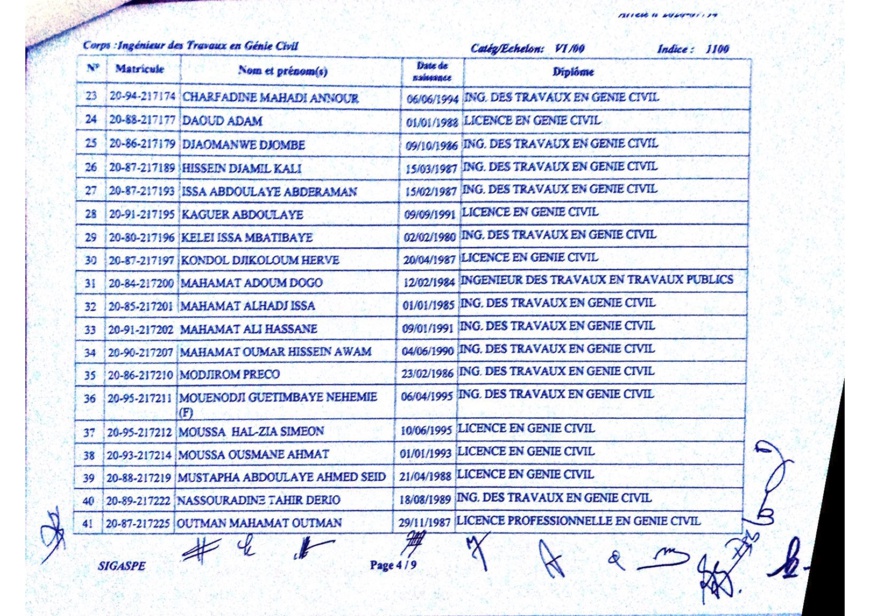 Corps :Ingénieur des Travaux en Génie Civil Catég/Echelon: VI /00 Indice : 1100
N° Matricule Nom et prénom(s) Date de naissance Diplôme
23 20-94-217174 CHARFADINE MAHADI ANNOUR 06/06/1994 ING. DES TRAVAUX EN GENIE CIVIL
24 20-88-217177 DAOUD ADAM 01/01/1988 LICENCE EN GENIE CIVIL
25 20-86-217179 DJAOMANWE DJOMBE 09/10/1986 ING. DES TRAVAUX EN GENIE CIVIL
26 20-87-217189 HISSEIN DJAMIL KALI 15/03/1987 ING. DES TRAVAUX EN GENIE CIVIL
27 20-87-217193 ISSA ABDOULAYE ABDERAMAN 15/02/1987 ING. DES TRAVAUX EN GENIE CIVIL
28 20-91-217195 KAGUER ABDOULAYE 09/09/1991 LICENCE EN GENIE CIVIL
29 20-80-217196 KELEI ISSA MBATIBAYE 02/02/1980 ING. DES TRAVAUX EN GENIE CIVIL
30 20-87-217197 KONDOL DJIKOLOUM HERVE 20/04/1987 LICENCE EN GENIE CIVIL
31 20-84-217200 MAHAMAT ADOUM DOGO 12/02/1984 INGENIEUR DES TRAVAUX EN TRAVAUX PUBLICS
32 20-85-217201 MAHAMAT ALHADJ ISSA 01/01/1985 ING. DES TRAVAUX EN GENIE CIVIL
33 20-91-217202 MAHAMAT ALI HASSANE 09/01/1991 ING. DES TRAVAUX EN GENIE CIVIL
34 20-90-217207 MAHAMAT OUMAR HISSEIN AWAM 04/06/1990 ING. DES TRAVAUX EN GENIE CIVIL
35 20-86-217210 MODJIROM PRECO 23/02/1986 ING. DES TRAVAUX EN GENIE CIVIL
36 20-95-217211 MOUENODJI GUETIMBAYE NEHEMIE 06/04/1995 ING. DES TRAVAUX EN GENIE CIVIL
(F)
37 20-95-217212 MOUSSA HAL-ZIA SIMEON 10/06/1995 LICENCE EN GENIE CIVIL
38 20-93-217214 MOUSSA OUSMANE AHMAT 01/01/1993 LICENCE EN GENIE CIVIL
39 20-88-217219 MUSTAPHA ABDOULAYE AHMED SEID 21/04/1988 LICENCE EN GENIE CIVIL
40 20-89-217222 NASSOURADINE TAHIR DERIO 18/08/1989 ING. DES TRAVAUX EN GENIE CIVIL
41 20-87-217225 OUTMAN MAHAMAT OUTMAN 29/11/1987 LICENCE PROFESSIONNELLE EN GENIE CIVIL
SIGASPE Page 4 / 9